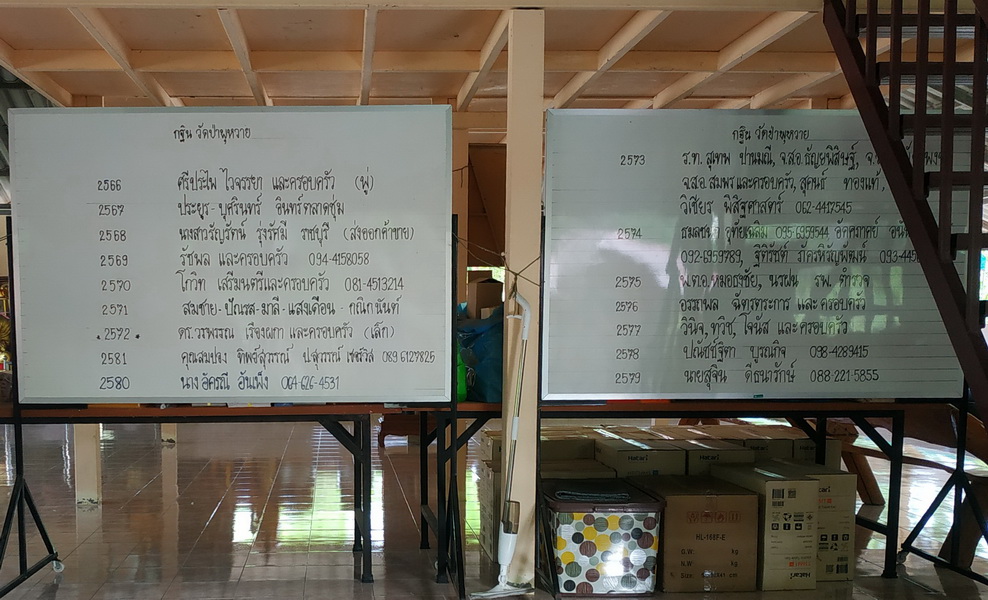 กฐิน วัดขำพุหวาย
2566 ศรีประไพ ไวจรรยา และครอบครัว (พู่)
2567 ประยูร - บุศรินทร์ อินทร์ตลาดชุม
2568 นางสาวรัญรัตน์ รุ่งรัศมี ราชบุรี (ส่งออกค้าขาย)
2569 รัชพล และครอบครัว 094-4158058
2570 โกวิท เสรีมนตรีและครอบครัว 081-4513214
2571 สมชาย - ปัณรส - มาลี - แสงเดือน - กณิกนันท์
2572 ดร. วรพรรณ เรืองผกา และครอบครัว (เล็ก)
2581 คุณสมปอง ทิพย์สุวรรณ์ ป.สุวรรณ์ เซอร์วิส 089 6127825
2580 นาง อัครณี อันเพ็ง 064-626-4531
กฐิน วัดขำพุหวาย
2573 ร.ท. สุเทพ ปานมณี, จ.ส.อ. ธัญยพิสิษฐ์,
จ.ส.อ. สมพร และครอบครัว, สุคนธ์ ทองแท้,
วิเชียร พิสิฐศาสตร์ 062-4417545
2574 095-6959544 อัคคราศย์
092-6959789, ฐิติรัชต์ ภัครหิรัญพัฒน์
2575 พ.ต.อ. หมอธงชัย, นรฝน รพ. ตำรวจ
2576 อรรถพล ฉัตรตระการ และ ครอบครัว
2577 วินิจ, ทวิช, โจนัส และ ครอบครัว
2578 ปณัชช์ฐิตา บูรณกิจ 098-4289415
2579 นายสุจิน ดีธนารักษ์ 088-221-5855
Hatari
HL-168F-E
G.W: kg
N.W: kg
Size:
Hatari